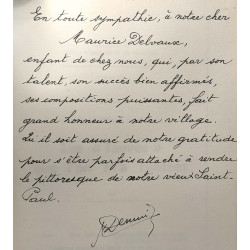 En toute sympathie, à notre cher
Maurice Delvaux,
enfant de chez nous, qui, par son
talent, son succès bien affirmés,
ses compositions puissantes, fait
grand honneur à notre village.
Qu'il soit assuré de notre gratitude
pour s'être parfois attaché à rendre
le pittoresque de notre vieux Saint-
Paul.